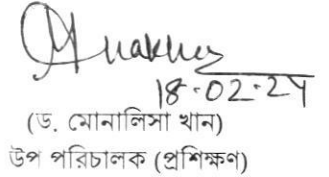 18-02-24
(ড. মোনালিসা খান)
উপ পরিচালক (প্রশিক্ষণ)